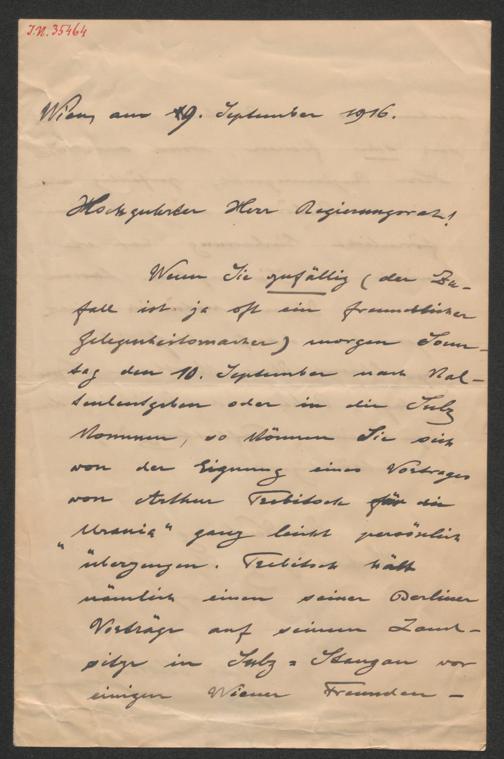 J.N. 35464
Wien, am 9. September 1916.
Hochgeehrter Herr Regierungsrat!
Wenn Sie zufällig (der Zu-
fall ist ja oft ein freundlicher
Gelegenheitsmacher) morgen Sonn-
tag den 10. September nach Kal-
tenleutgeben oder in die Sulz
kommen, so können Sie sich
von der Eignung eines Vortrages
von Arthur Trebitsch für die
„Urania" ganz leicht persönlich
überzeugen. Trebitsch hält
nämlich einen seiner Berliner
Vorträge auf seinem Land-
sitze in Sulz-Stangau vor
einigen Wiener Freunden –